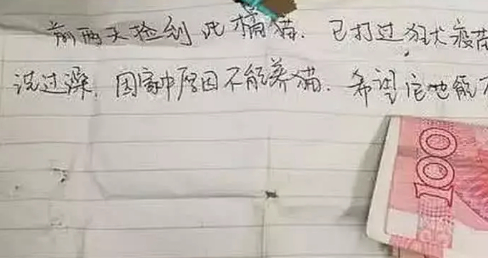 前两天捡到此橘猫.已打过狂犬疫苗
洗过澡.因家中原因不能养猫.希望它也能
100